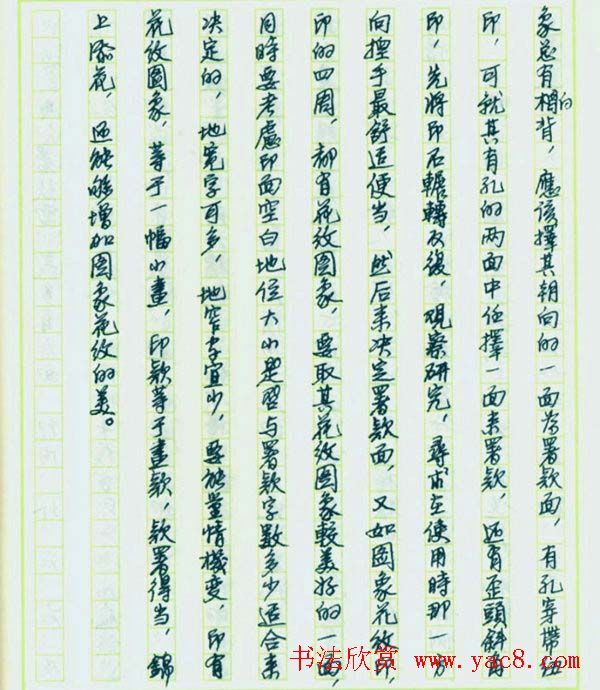 象总有相背，應该擇其朝向的一面为署款面，有孔穿帶钮
印，可就其有孔的两面中任擇一面来署款，还有歪頭斜角
印，先將印石輾轉反復，观察研究，尋求在使用時那一方
向捏手最舒适便当，然后来决定署款面，又如图象花纹印，
印的四周，都有花纹图象，要取其花纹图象較美好的一面，
同時要考慮印面空白地位大小是否与署款字數多少适合来
决定的，地宽字可多，地窄字宜少，要能量情機变，印有
花纹图象，等于一幅小畫，印款等于畫款，款署得当，錦
上添花，还能够增加图象花纹的美。
书法欣赏 www.yac8.com